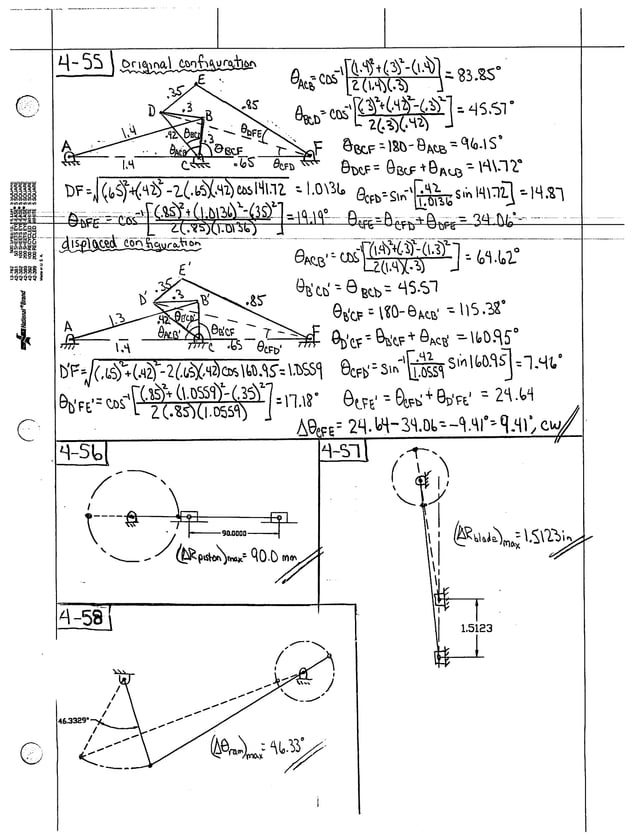 4-55 Original configuration
E
D .35 .3 B .85
A 1.4 .42 θBCD .3 θDFE F
θACB θBCF θCFD
1.4 C .65
θACB = cos⁻¹[((1.4)²+(.3)²-(1.4))/(2(1.4)(.3))] = 83.85°
θBCD = cos⁻¹[((.3)²+(.42)²-(.3)²)/(2(.3)(.42))] = 45.57°
θBCF = 180-θACB = 96.15°
θDCF = θBCF + θACB = 141.72°
DF = √((.65)²+(.42)²-2(.65)(.42)cos141.72) = 1.0136
θCFD = sin⁻¹[.42/1.0136 sin141.72] = 14.87
θDFE = cos⁻¹[((.85)²+(1.0136)²-(.35)²)/(2(.85)(1.0136))] = 19.19°
θCFE = θCFD + θDFE = 34.06°
displaced configuration
E'
D' .35 .3 B' .85
A 1.3 .42 θBCD' θB'CF F
θACB' 1.4 C .65 θCFD'
θACB' = cos⁻¹[((1.4)²+(.3)²-(1.3)²)/(2(1.4)(.3))] = 64.62°
θB'CD' = θBCD = 45.57
θB'CF = 180-θACB' = 115.38°
θD'CF = θB'CF + θACB' = 160.95°
D'F = √((.65)²+(.42)²-2(.65)(.42)cos160.95) = 1.0559
θCFD' = sin⁻¹[.42/1.0559 sin160.95] = 7.46°
θD'FE' = cos⁻¹[((.85)²+(1.0559)²-(.35)²)/(2(.85)(1.0559))] = 17.18°
θCFE' = θCFD' + θD'FE' = 24.64
ΔθCFE = 24.64-34.06 = -9.41° = 9.41°, CW
4-56
90.0000
(ΔRpiston)max = 90.0 mm
4-57
(ΔRblade)max = 1.5123in
1.5123
4-58
46.3329°
(Δθram)max = 46.33°
National® Brand